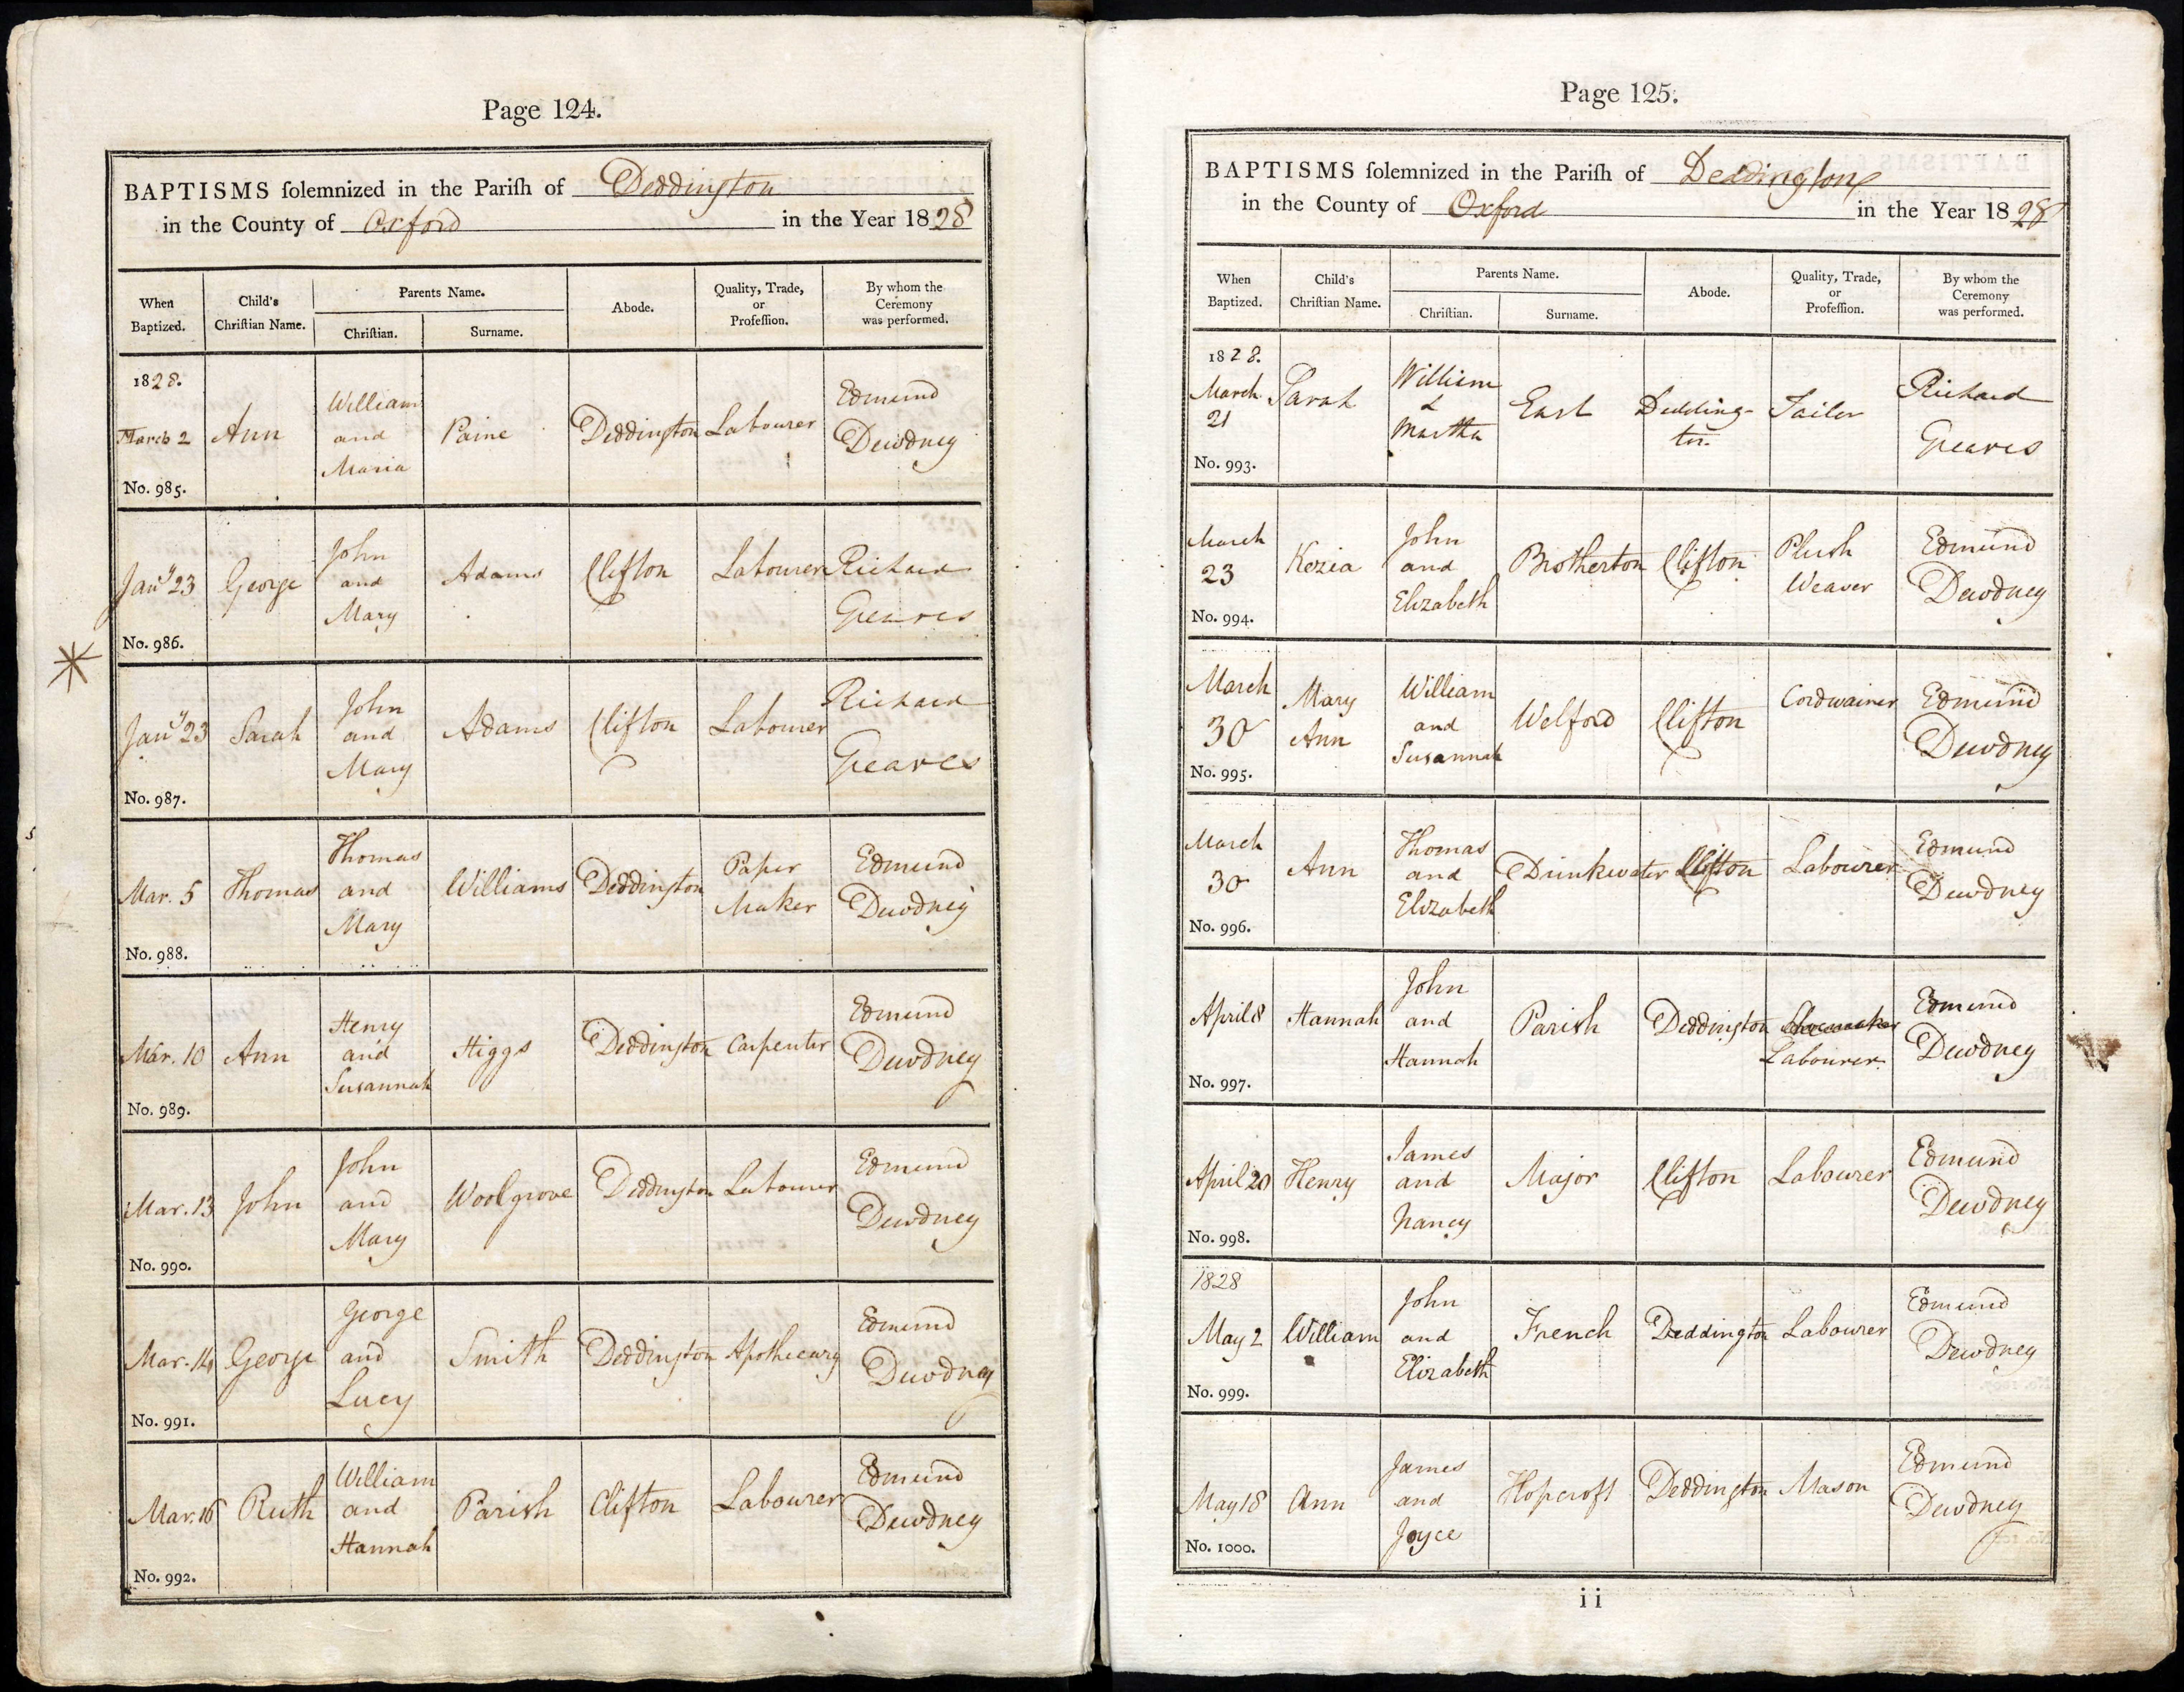 Page 124.
BAPTISMS ſolemnized in the Pariſh of Deddington
in the County of Oxford in the Year 1828
When
Baptized.
Child's
Chriſtian Name.
Parents Name.
Chriſtian.
Surname.
Abode.
Quality, Trade,
or
Profeſſion.
By whom the
Ceremony
was performed.
1828.
March 2
No. 985.
Ann
William
and
Maria
Paine
Deddington
Labourer
Edmund
Dewdney
Jany 23
No. 986.
George
John
and
Mary
Adams
Clifton
Labourer
Richard
Greaves
Jany 23
No. 987.
Sarah
John
and
Mary
Adams
Clifton
Labourer
Richard
Greaves
Mar. 5
No. 988.
Thomas
Thomas
and
Mary
Williams
Deddington
Paper
Maker
Edmund
Dewdney
Mar. 10
No. 989.
Ann
Henry
and
Susannah
Higgs
Deddington
Carpenter
Edmund
Dewdney
Mar. 13
No. 990.
John
John
and
Mary
Woolgrove
Deddington
Labourer
Edmund
Dewdney
Mar. 14
No. 991.
George
George
and
Lucy
Smith
Deddington
Apothecary
Edmund
Dewdney
Mar. 16
No. 992.
Ruth
William
and
Hannah
Parish
Clifton
Labourer
Edmund
Dewdney
Page 125.
BAPTISMS ſolemnized in the Pariſh of Deddington
in the County of Oxford in the Year 1828
When
Baptized.
Child's
Chriſtian Name.
Parents Name.
Chriſtian.
Surname.
Abode.
Quality, Trade,
or
Profeſſion.
By whom the
Ceremony
was performed.
1828.
March
21
No. 993.
Sarah
William
&
Martha
East
Dedding-
ton
Tailor
Richard
Greaves
March
23
No. 994.
Kezia
John
and
Elizabeth
Brotherton
Clifton
Plush
Weaver
Edmund
Dewdney
March
30
No. 995.
Mary
Ann
William
and
Susannah
Welford
Clifton
Cordwainer
Edmund
Dewdney
March
30
No. 996.
Ann
Thomas
and
Elizabeth
Drinkwater
Clifton
Labourer
Edmund
Dewdney
April 8
No. 997.
Hannah
John
and
Hannah
Parish
Deddington
Shoemaker
Labourer
Edmund
Dewdney
April 20
No. 998.
Henry
James
and
Nancy
Major
Clifton
Labourer
Edmund
Dewdney
1828
May 2
No. 999.
William
John
and
Elizabeth
French
Deddington
Labourer
Edmund
Dewdney
May 18
No. 1000.
Ann
James
and
Joyce
Hopcroft
Deddington
Mason
Edmund
Dewdney
ii